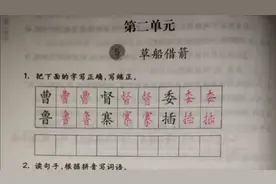 第二单元
5 草船借箭
1. 把下面的字写正确,写端正。
曹 曹 曹 督 督 督 委 委 委
鲁 鲁 鲁 寨 寨 寨 插 插 插
2. 读句子,根据拼音写词语。